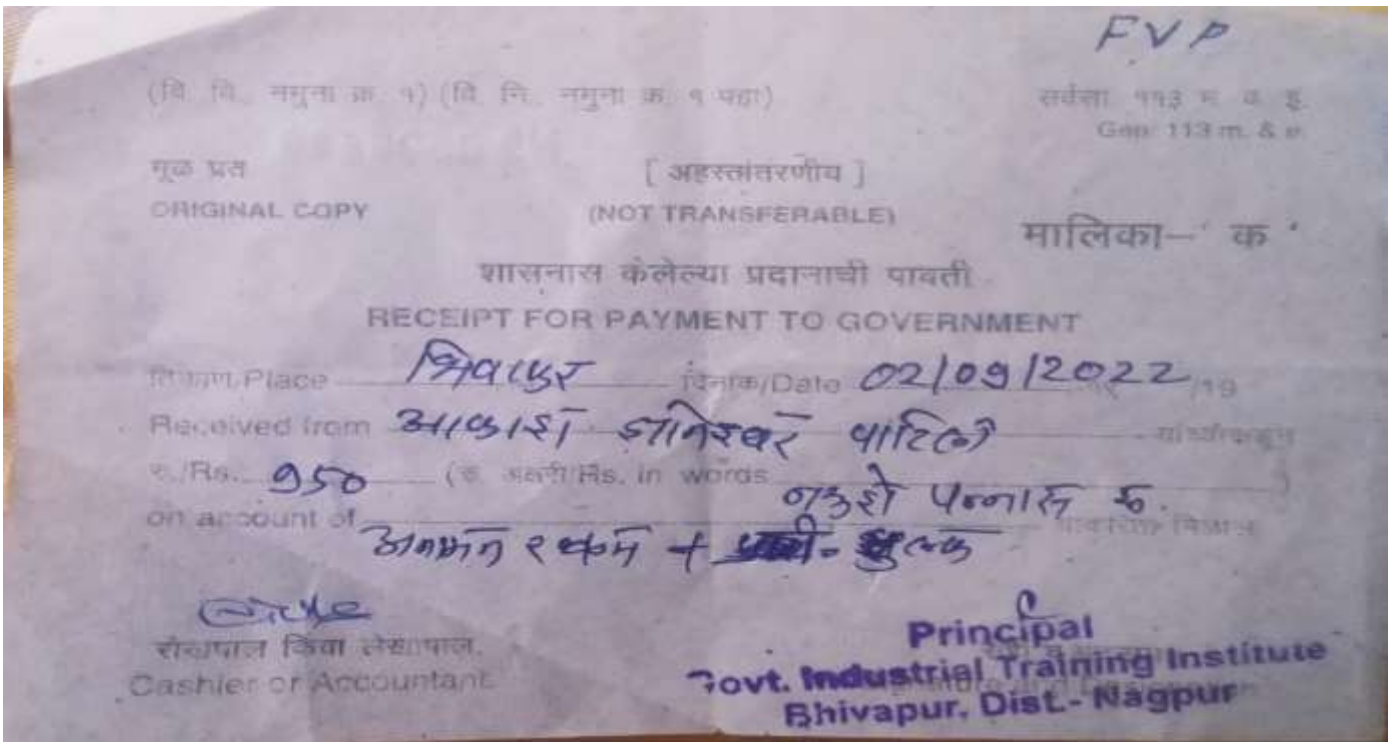 FVP
(वि. वि. नमुना क्र. १) (वि. नि. नमुना क्र. १ पहा)
सर्वसा ११३ म. व इ.
Gen. 113 m. & e.
मूळ प्रत
[ अहस्तांतरणीय ]
ORIGINAL COPY
(NOT TRANSFERABLE)
मालिका– ' क '
शासनास केलेल्या प्रदानाची पावती
RECEIPT FOR PAYMENT TO GOVERNMENT
ठिकाण/Place भिवापुर दिनांक/Date 02/09/2022 /19
Received from आकाश ज्ञानेश्वर पाटील यांच्याकडून
रु./Rs. 950 (रु. अक्षरी/Rs. in words नऊशे पन्नास रु. )
on account of अनामत रक्कम + शुल्क मिळाले
रोखपाल किंवा लेखापाल.
Cashier or Accountant.
Principal
Govt. Industrial Training Institute
Bhivapur, Dist.- Nagpur